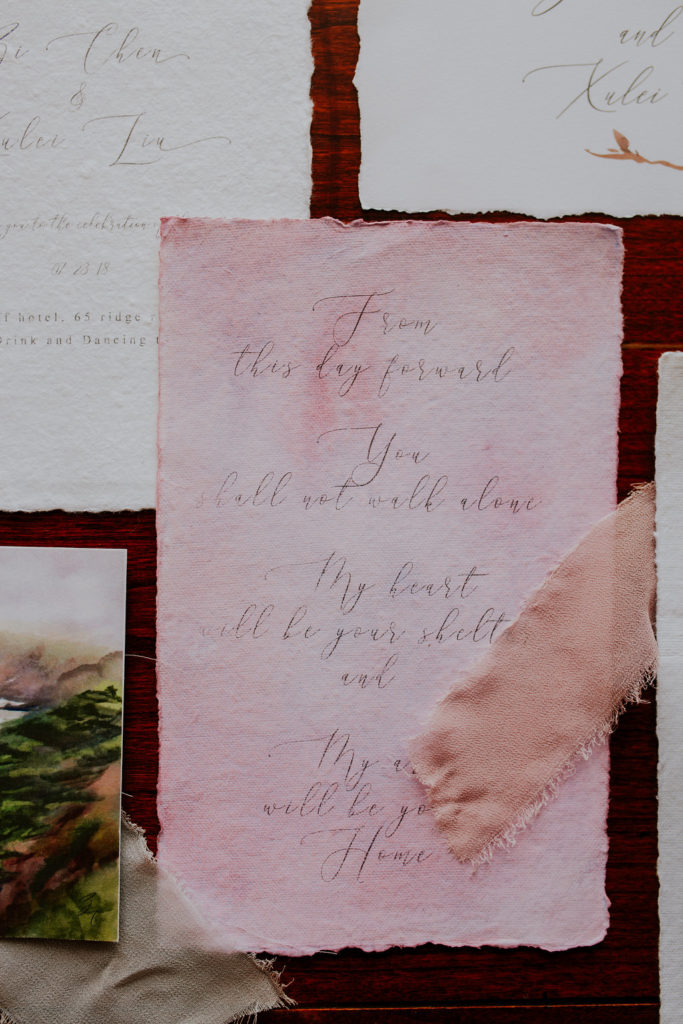 Chen
&
Liu
you to the celebration
01 23 18
hotel, 65 ridge
Drink and Dancing
and
Xulei
From
this day forward
You
shall not walk alone
My heart
will be your
and
My
will be
Home